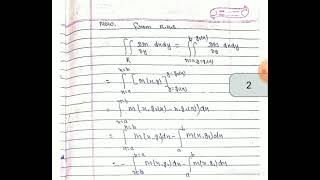 Now. from R.H.S
∬_R ∂m/∂y dxdy = ∫_{x=a}^{b} ∫_{y=g₁(x)}^{g₂(x)} ∂m/∂y dxdy
= ∫_{x=a}^{x=b} [m(x,y)]_{y=g₁(x)}^{y=g₂(x)}
2
= ∫_{x=a}^{x=b} m(x,g₂(x)-x,g₁(x))dx
= ∫_{x=a}^{x=b} m(x,g₂)dx - ∫_a^b m(x,g₁)dx
= - ∫_{x=b}^{x=a} m(x,g₂)dx - ∫_a^b m(x,g₁)dx